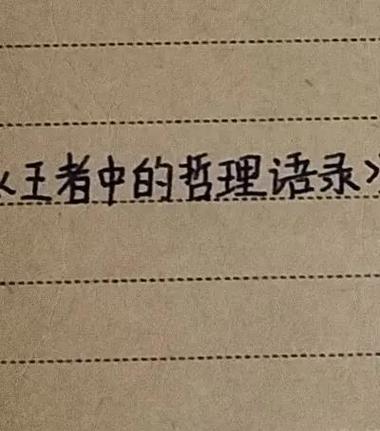 《王者中的哲理语录》